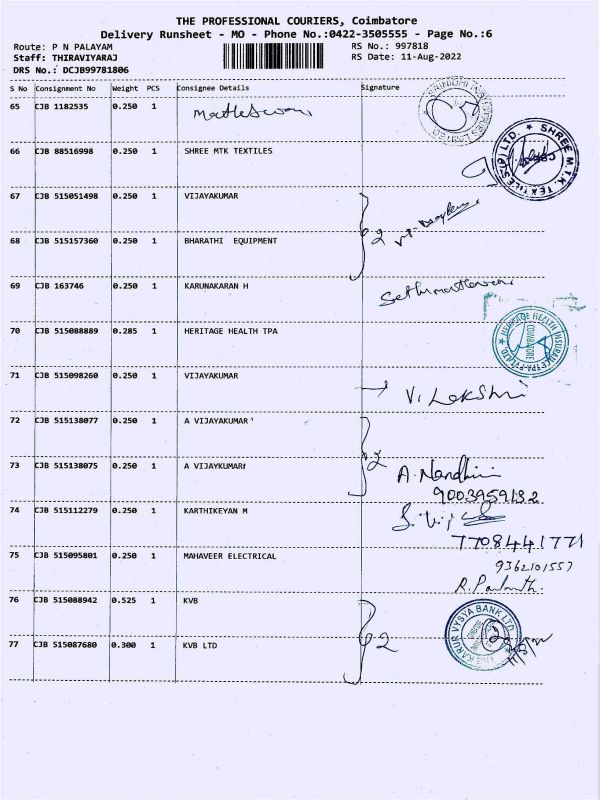 THE PROFESSIONAL COURIERS, Coimbatore
Delivery Runsheet - MO - Phone No.:0422-3505555 - Page No.:6
Route: P N PALAYAM RS No.: 997818
Staff: THIRAVIYARAJ RS Date: 11-Aug-2022
DRS No.: DCJB99781806
S No Consignment No Weight PCS Consignee Details Signature
65 CJB 1182535 0.250 1
66 CJB 88516998 0.250 1 SHREE MTK TEXTILES
SHREE M.T.K. TEXTILES (P) LTD.
67 CJB 515051498 0.250 1 VIJAYAKUMAR
2
68 CJB 515157360 0.250 1 BHARATHI EQUIPMENT
69 CJB 163746 0.250 1 KARUNAKARAN H
70 CJB 515088889 0.285 1 HERITAGE HEALTH TPA
HERITAGE HEALTH INSURANCE TPA PVT LTD
COIMBATORE
71 CJB 515098260 0.250 1 VIJAYAKUMAR V. Lakshmi
72 CJB 515138077 0.250 1 A VIJAYAKUMAR
2
73 CJB 515138075 0.250 1 A VIJAYKUMAR A. Nandhini
9003959132
74 CJB 515112279 0.250 1 KARTHIKEYAN M
7708441771
75 CJB 515095801 0.250 1 MAHAVEER ELECTRICAL 9362101557
76 CJB 515088942 0.525 1 KVB
THE KARUR VYSYA BANK LTD
2
77 CJB 515087680 0.300 1 KVB LTD